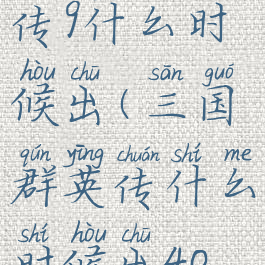 传9什么时
hòu chū sān guó
候出(三国
qún yīng chuán shí me
群英传什么
shí hòu chū
时候出40